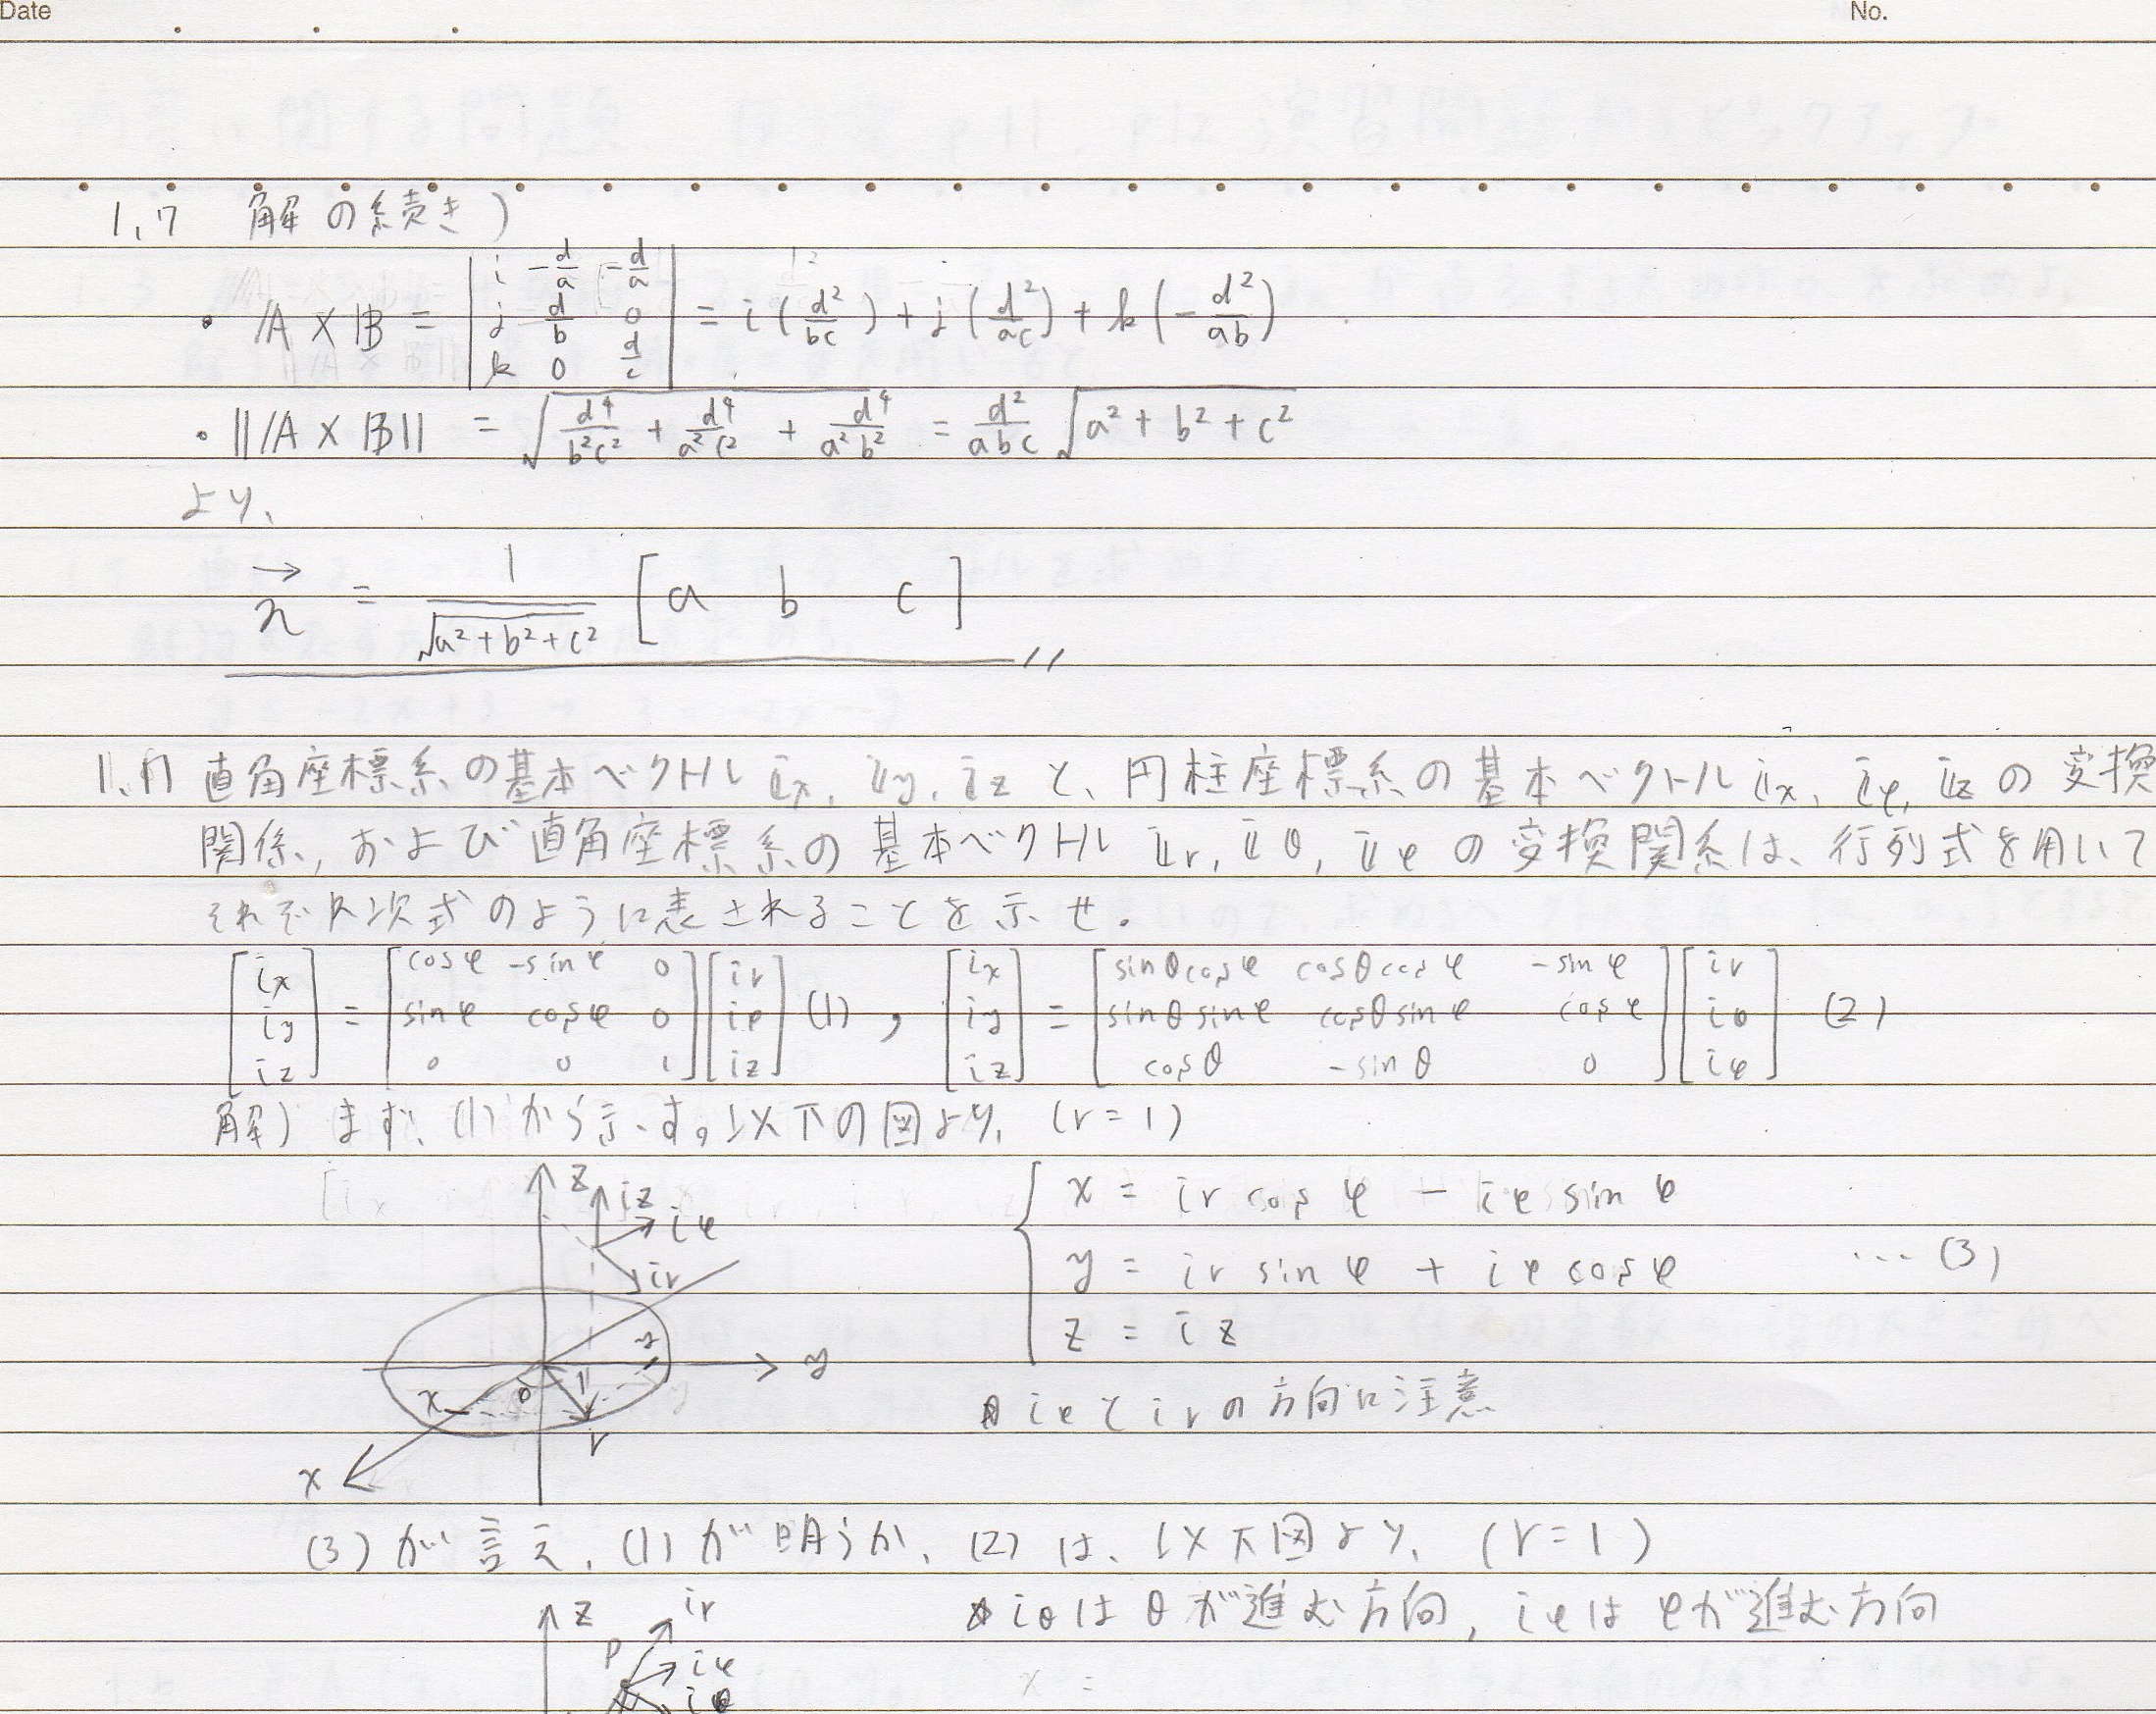 Date
No.
1.7 解の続き)
・A × B = | i -d/a -d/a ; j d/b 0 ; k 0 d/c | = i (d²/bc) + j (d²/ac) + k (-d²/ab)
・||A × B|| = √(d⁴/b²c² + d⁴/a²c² + d⁴/a²b²) = d²/abc √(a² + b² + c²)
より、
→n = 1/√(a²+b²+c²) [a b c] 〃
直角座標系の基本ベクトル ix, iy, iz と、円柱座標系の基本ベクトル ix, iφ, iz の変換
関係, および直角座標系の基本ベクトル ir, iθ, iφ の変換関係は、行列式を用いて
それぞれ次式のように表されることを示せ。
[ix ; iy ; iz] = [cosφ -sinφ 0 ; sinφ cosφ 0 ; 0 0 1] [ir ; iφ ; iz] (1) , [ix ; iy ; iz] = [sinθcosφ cosθcosφ -sinφ ; sinθsinφ cosθsinφ cosφ ; cosθ -sinθ 0] [ir ; iθ ; iφ] (2)
解) まず、(1)から示す。以下の図より、(r=1)
z
iz
iφ
ir
y
x
y
r
x
x = ir cosφ - iφ sinφ
y = ir sinφ + iφ cosφ … (3)
z = iz
iφとirの方向に注意
(3)が言え、(1)が明らか、(2)は、以下図より、(r=1)
z
ir
P
iφ
iθ
iθはθが進む方向, iφはφが進む方向
x =